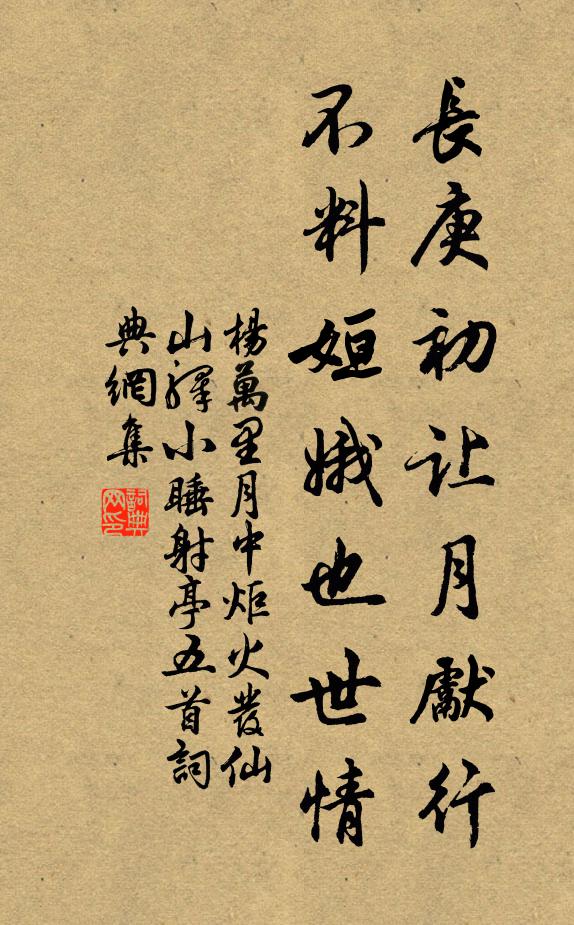 長庚初让月獻行
不料姮娥也世情
楊萬里月中炬火發仙
山驛小睡射亭五首詞
典網集
詞典
网印